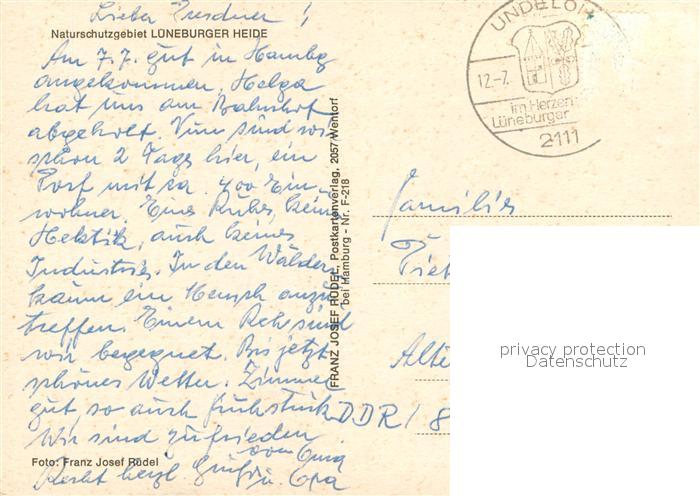 Lieber Dresdner!
Naturschutzgebiet LÜNEBURGER HEIDE
Am 7.7. gut in Hambg
angekommen, Helga
hat uns am Bahnhof
abgeholt. Nun sind wir
schon 2 Tage hier, ein
Dorf mit ca. 400 Ein-
wohner. Eine Ruhe, keine
Hektik, auch keine
Industrie. In den Wäldern
kaum ein Mensch anzu-
treffen. Einem Reh sind
wir begegnet. Bis jetzt
schönes Wetter. Zimmer
gut, so auch Frühstück
Wir sind zufrieden
Foto: Franz Josef Rüdel
Recht herzl. Grüße von Oma
u. Opa
FRANZ JOSEF RÜDEL, Postkartenverlag, 2057 Wentorf
bei Hamburg - Nr. F-218
UNDELOH
12.-7.
im Herzen
Lüneburger
2111
Familie
DDR / 8
privacy protection
Datenschutz